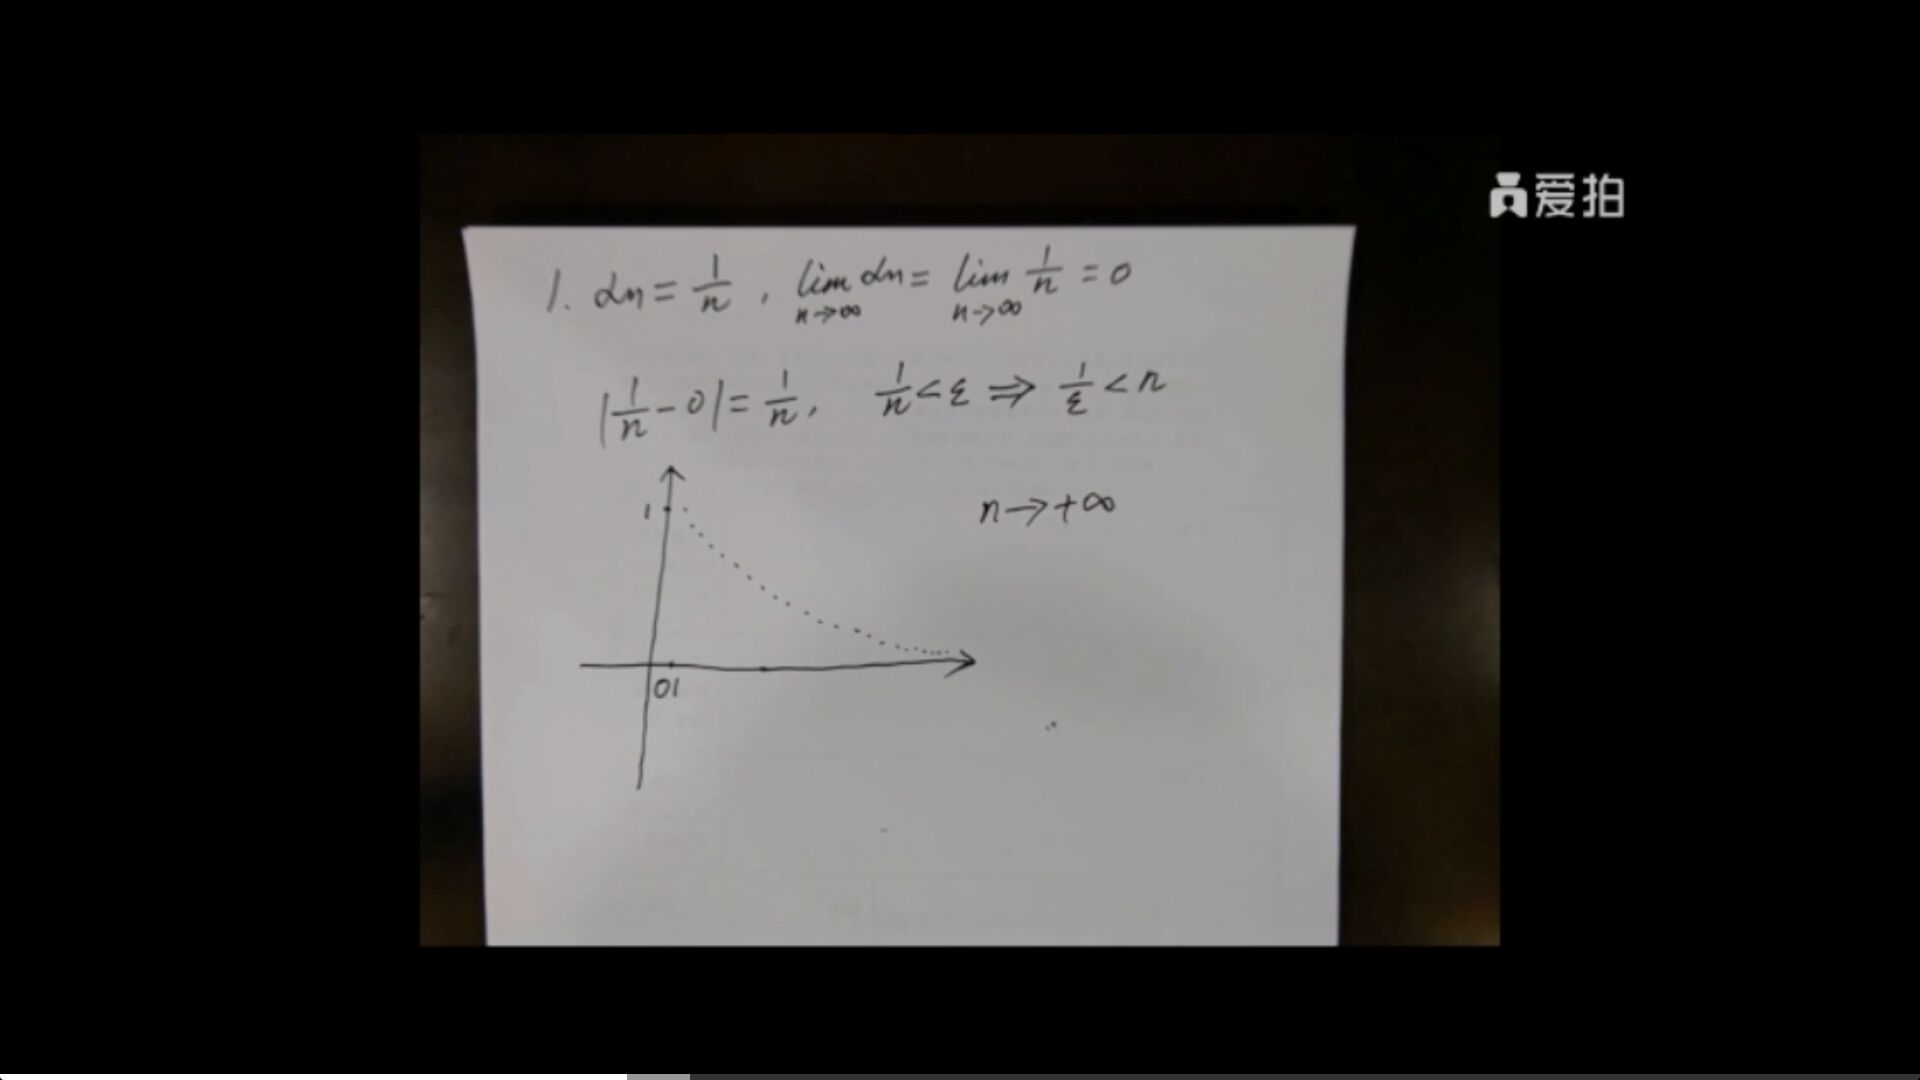 爱拍
1. αn = 1/n , lim n→∞ αn = lim n→∞ 1/n = 0
|1/n - 0| = 1/n , 1/n < ε ⇒ 1/ε < n
n → +∞
1
0 1